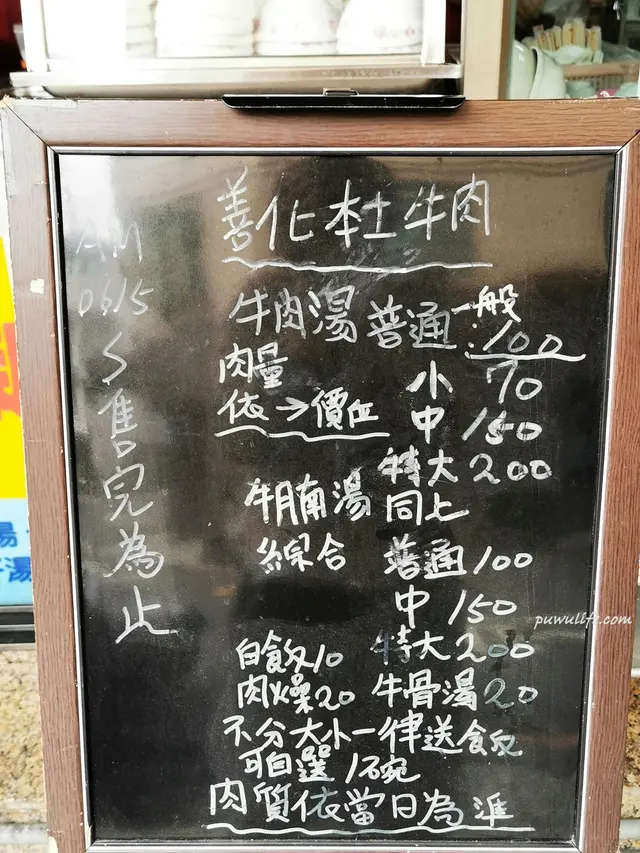 善化本土牛肉
AM
0615
〜
售完為止
牛肉湯 普通 一般
100
肉量 小 70
依→價位 中 150
特大 200
牛腩湯 同上
綜合 普通 100
中 150
特大 200
白飯10
肉燥20 牛骨湯20
不分大小一律送飯
可自選1碗
肉質依當日為準
puwulife.com
湯
湯